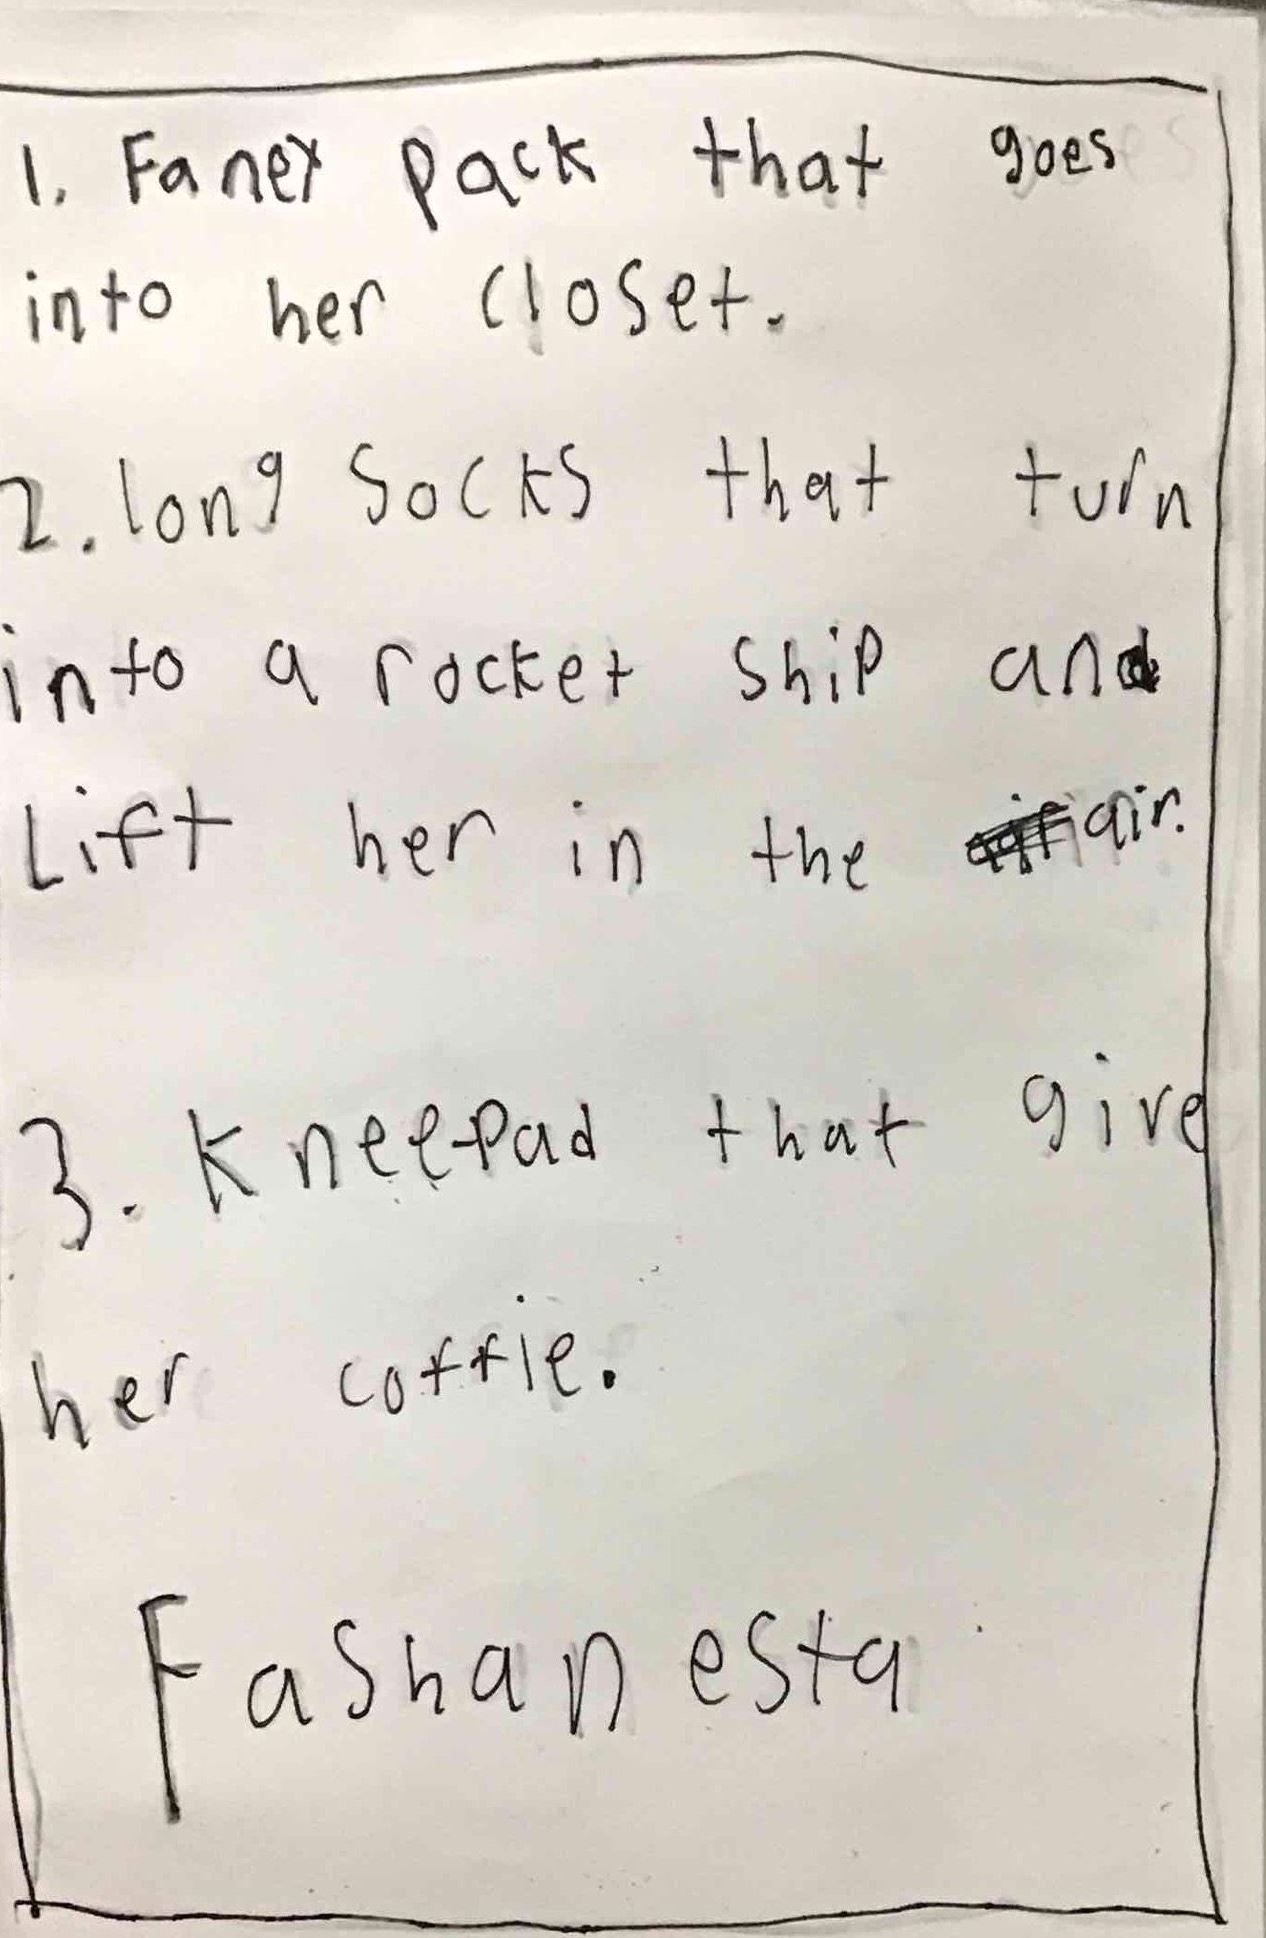 1. Faney pack that goes
into her closet.
2. long socks that turn
into a rocket ship and
Lift her in the air.
3. Kneepad that give
her coffie.
Fashanesta